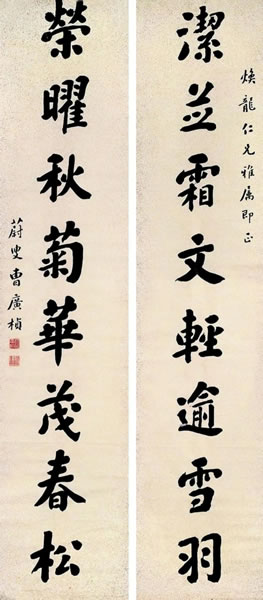 煥龍仁兄雅属即正
潔並霜文輕逾雪羽
榮曜秋菊華茂春松
蔚叟曹廣楨